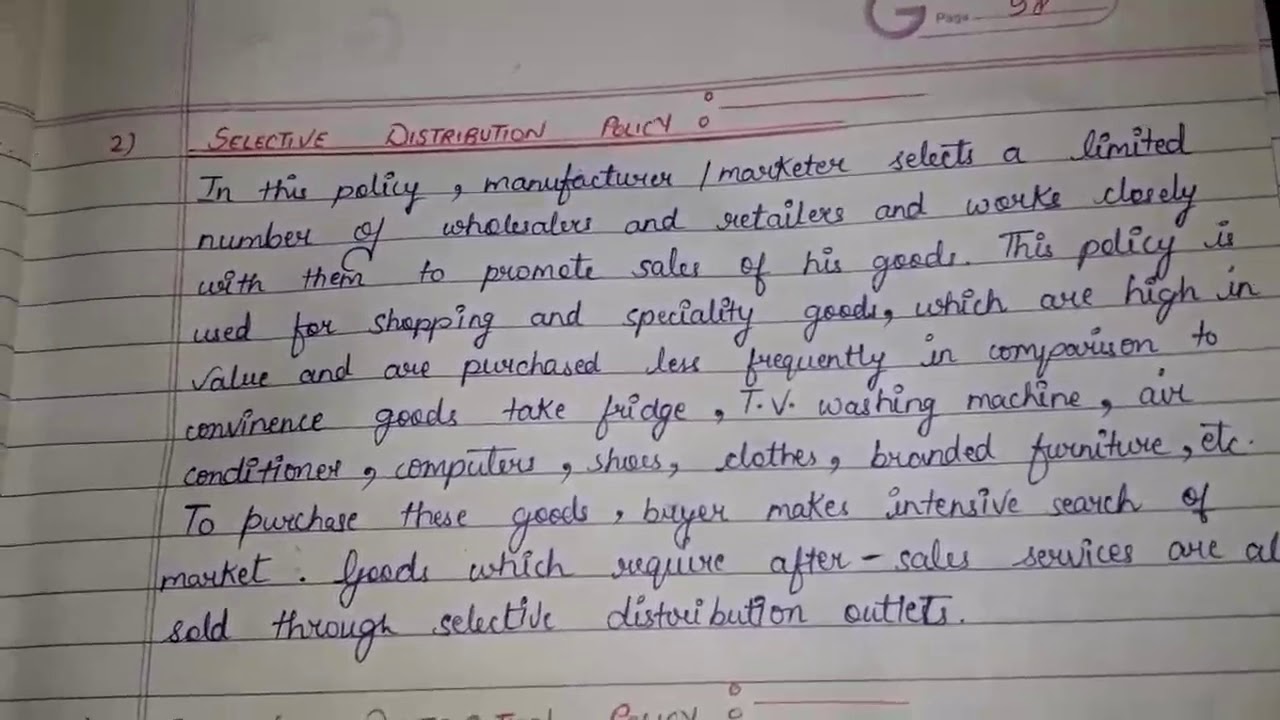 Page 98
2) SELECTIVE DISTRIBUTION POLICY :
In this policy, manufacturer / marketer selects a limited
number of wholesalers and retailers and works closely
with them to promote sales of his goods. This policy is
used for shopping and speciality goods, which are high in
value and are purchased less frequently in comparison to
convinence goods take fridge, T.V. washing machine, air
conditioner, computers, shoes, clothes, branded furniture, etc.
To purchase these goods, buyer makes intensive search of
market. Goods which require after-sales services are al
sold through selective distribution outlets.
POLICY :